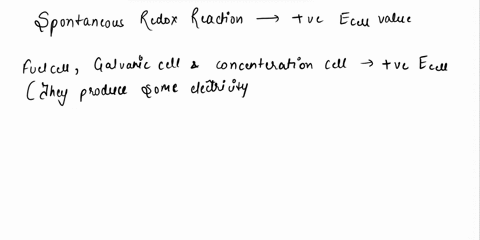 Spontaneous Redox Reaction → +ve Ecell value
Fuel cell, Galvanic cell & concenteration cell → +ve Ecell
(They produce some electricity